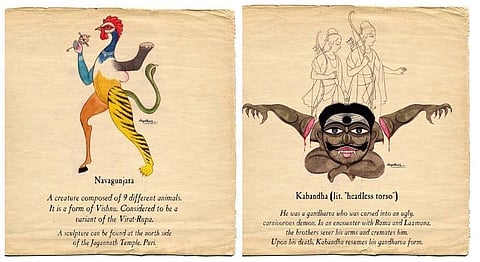 Navagunjara
A creature composed of 9 different animals.
It is a form of Vishnu. Considered to be a
variant of the Virat-Rupa.
A sculpture can be found at the north side
of the Jagannath Temple, Puri.
Kabandha (lit. "headless torso")
He was a gandharva who was cursed into an ugly,
carnivorous demon. In an encounter with Rama and Laxmana,
the brothers sever his arms and cremates him.
Upon his death, Kabandha resumes his gandharva form.